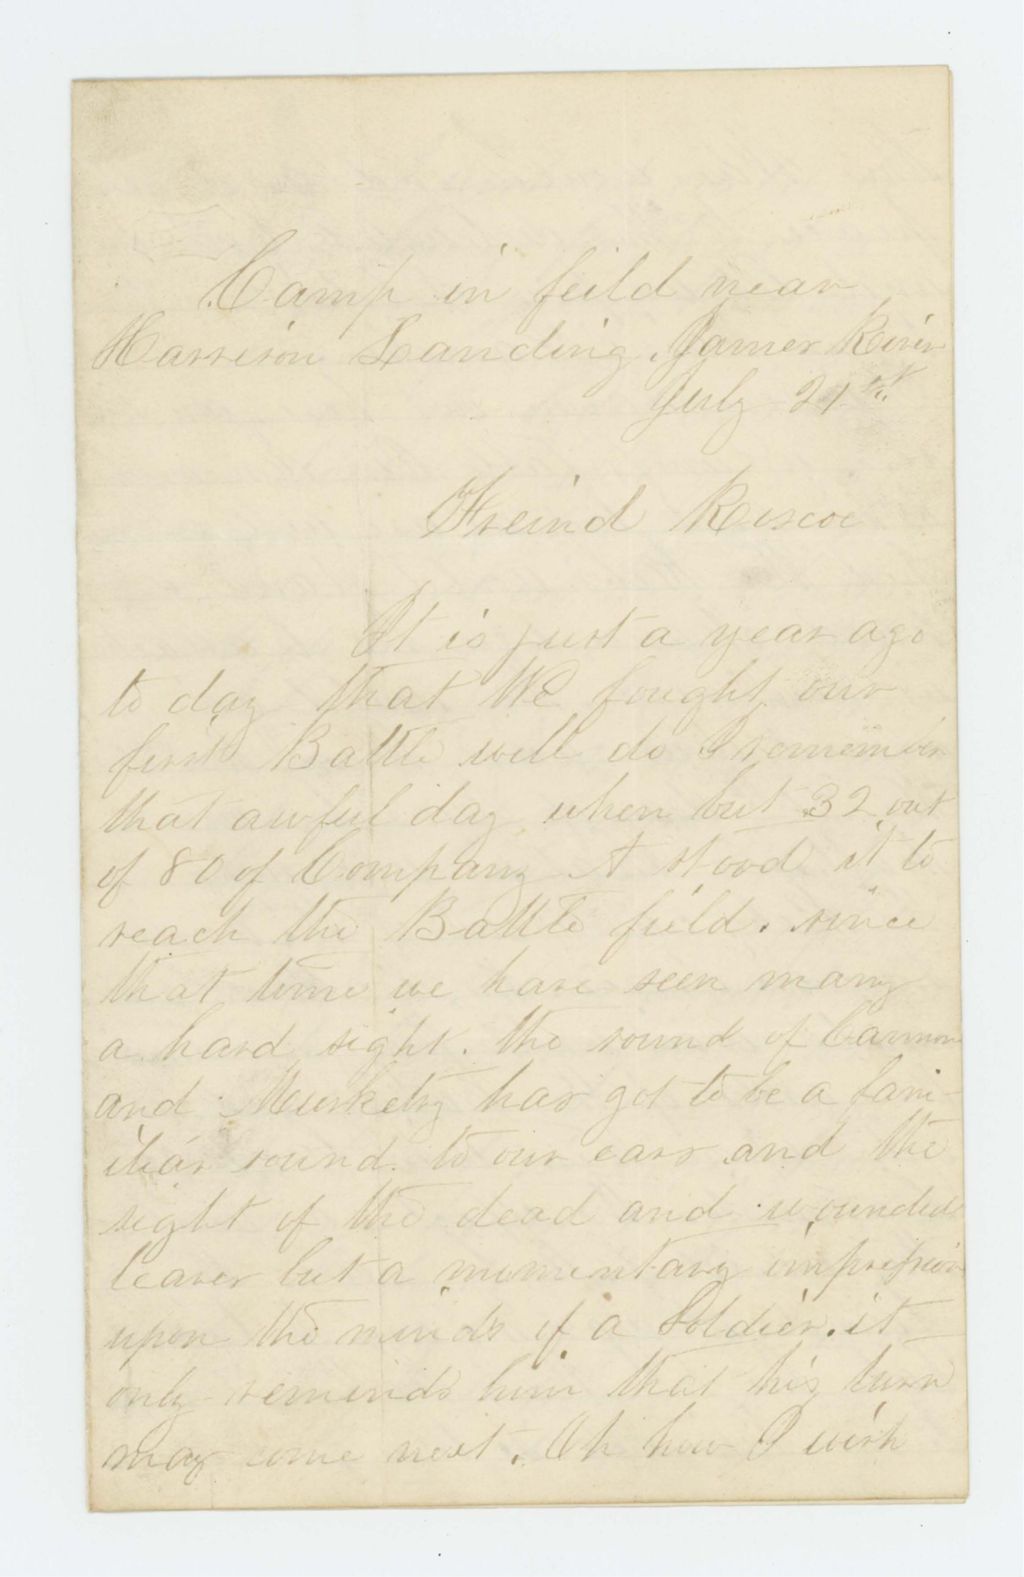 Camp in feild near
Harrison Landing James River
July 21st
Freind Roscoe
It is just a year ago
to day that We fought our
first Battle well do I remember
that awful day when but 32 out
of 80 of Company A stood it to
reach the Battle field. since
that time we have seen many
a hard sight. the sound of Cannon
and Musketry has got to be a fam-
iliar sound to our ears and the
sight of the dead and wounded
leaves but a momentary impression
upon the minds of a Soldier. it
only reminds him that his turn
may come next. Oh how I wish